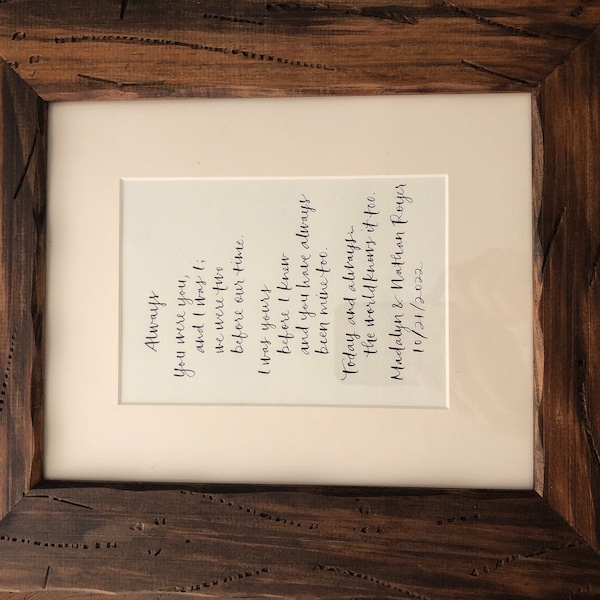 Always
you were you,
and I was I;
we were two
before our time.
I was yours
before I knew
and you have always
been mine too.
Today and always
the world knows it too.
Madalyn & Nathan Royer
10/21/2022